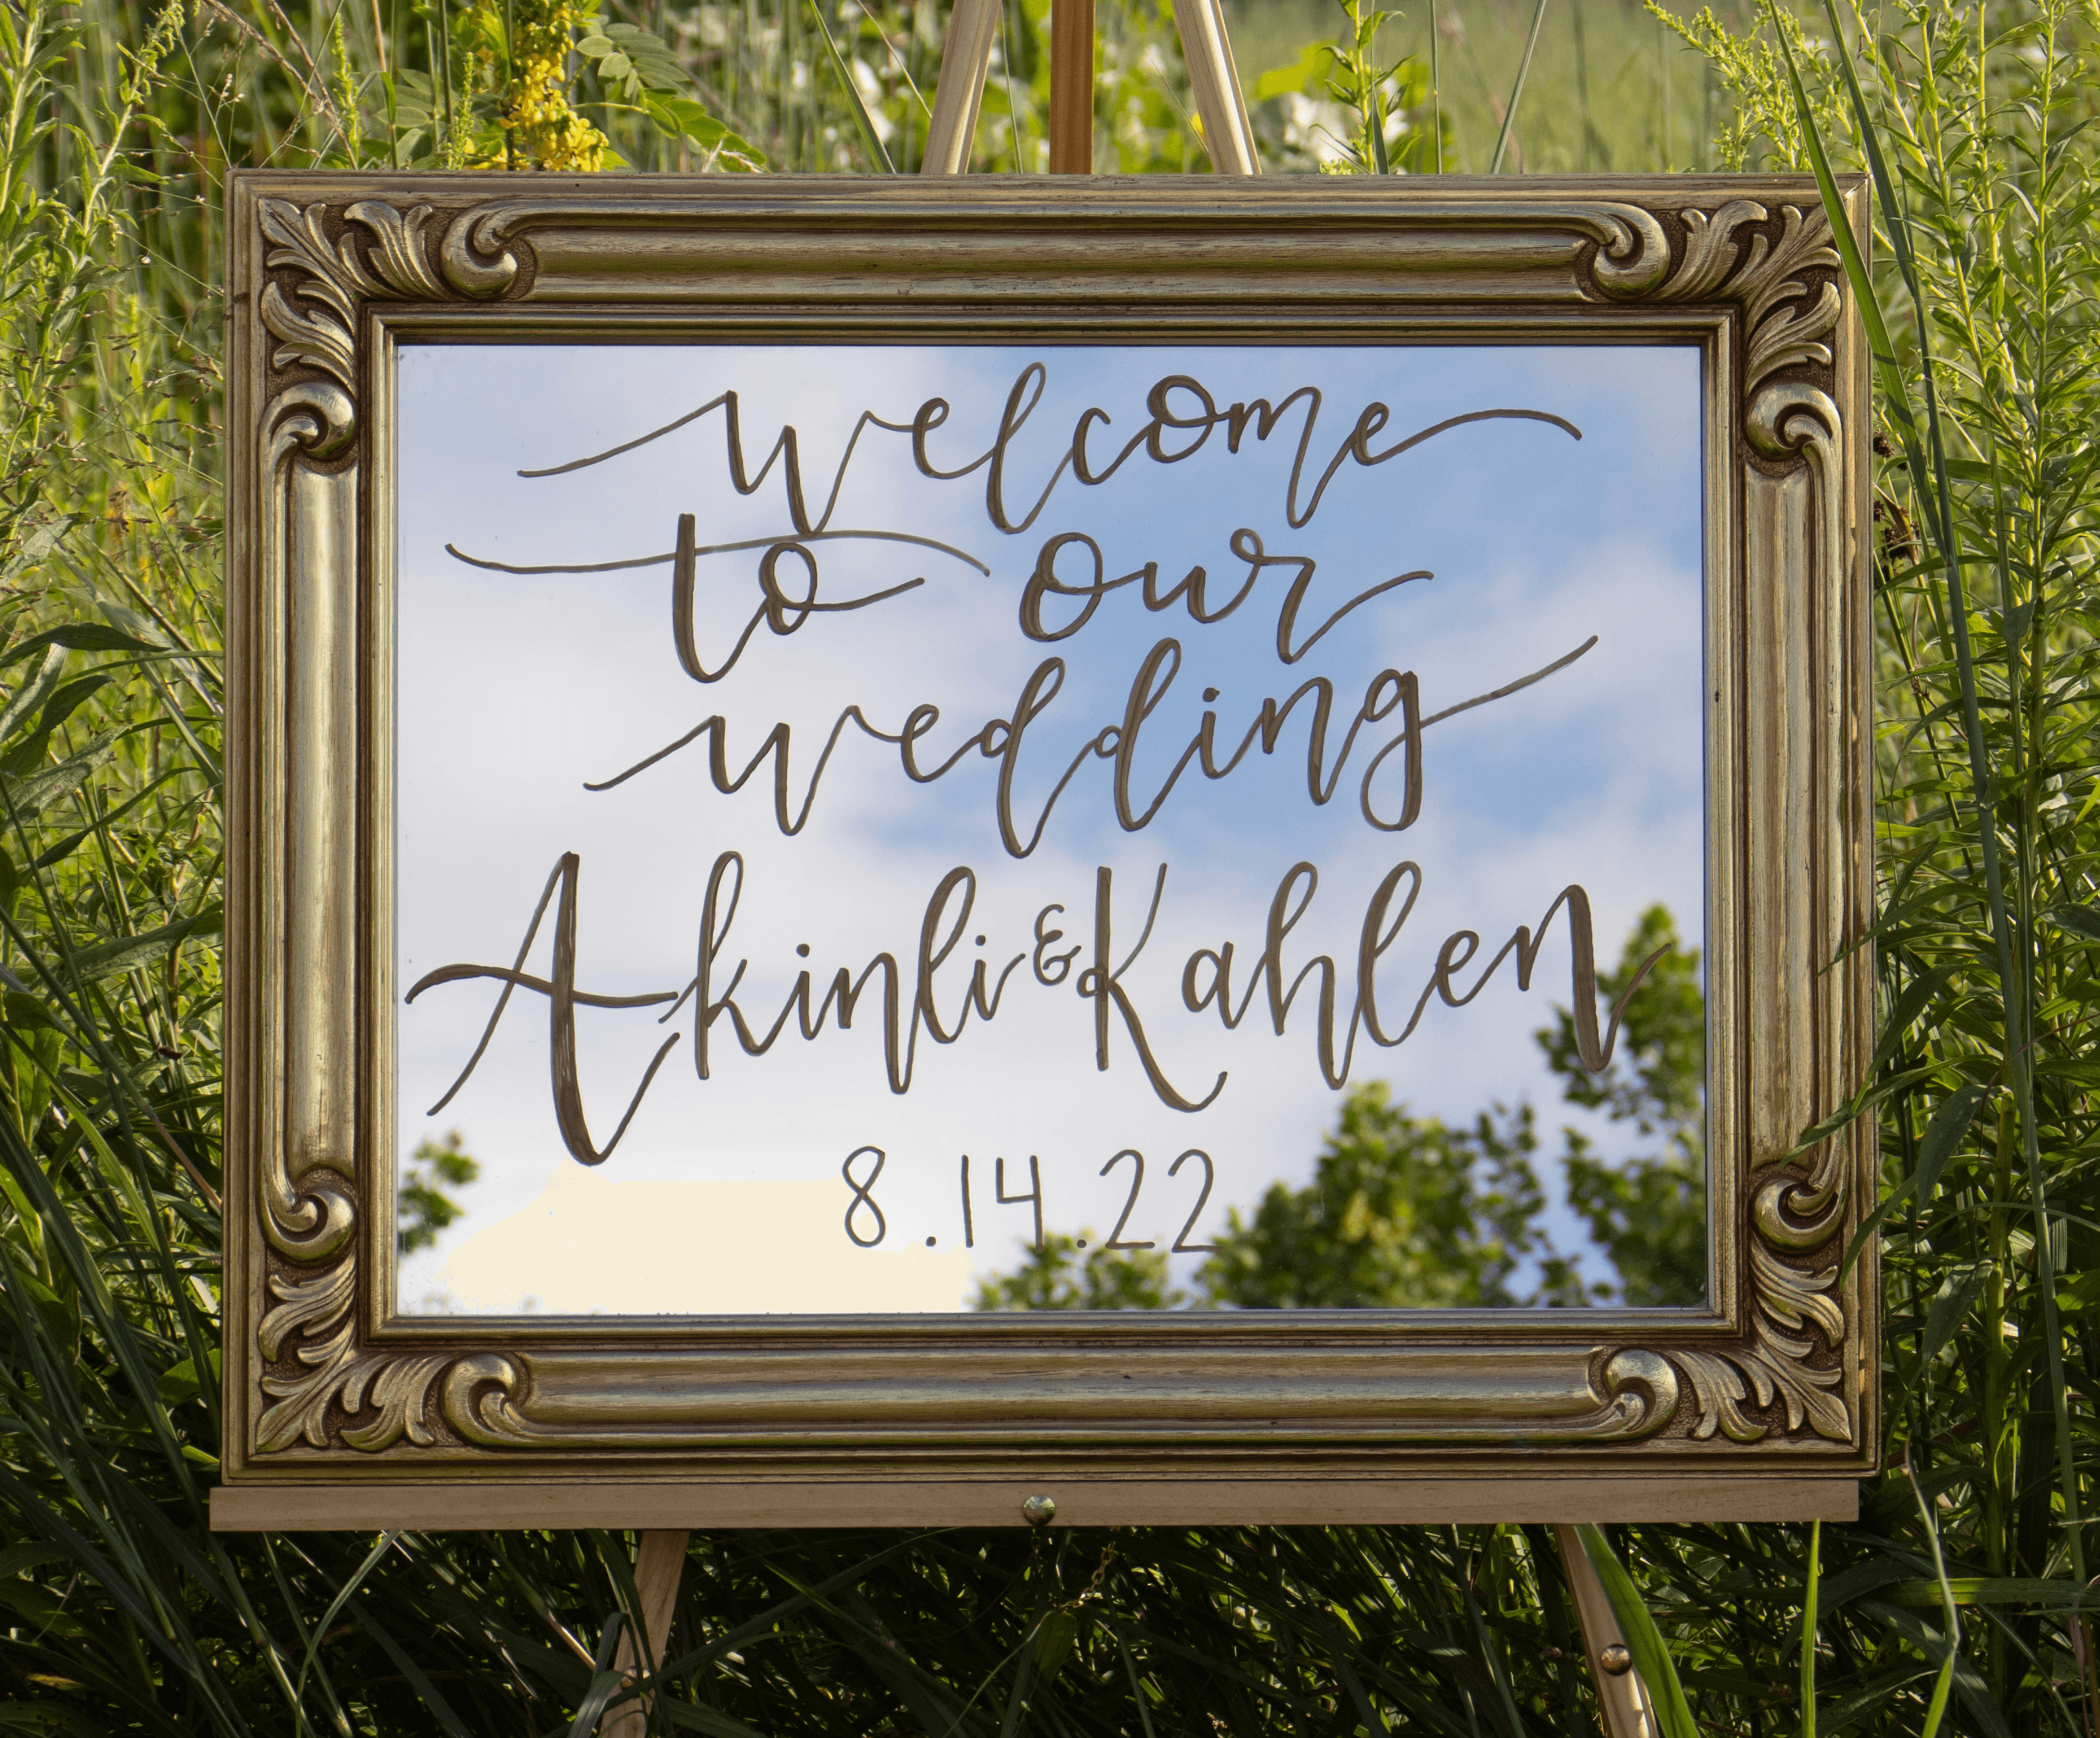 welcome
to our
wedding
Akinli & Kahlen
8.14.22